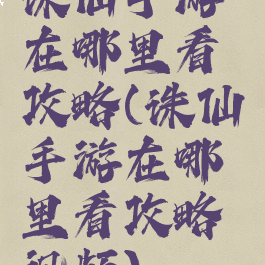 诛仙手游
在哪里看
攻略(诛仙
手游在哪
里看攻略
视频)